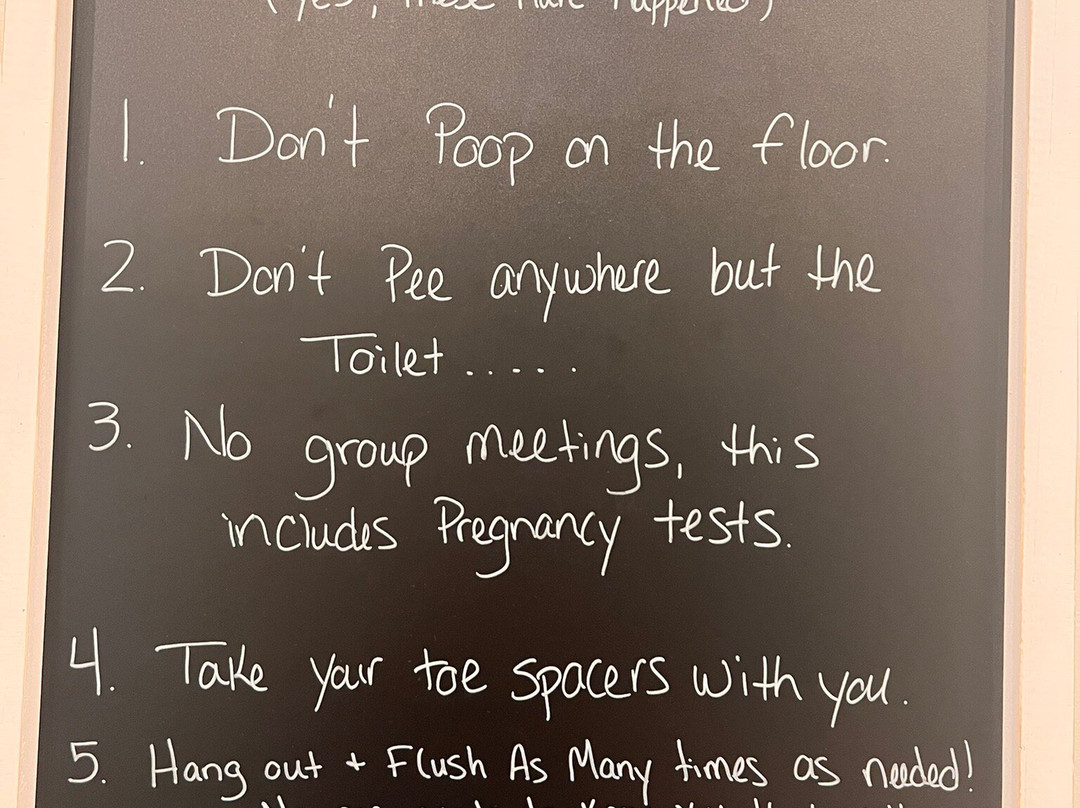 (Yes, these Have Happened)
1. Don't Poop on the floor.
2. Don't Pee anywhere but the
Toilet.....
3. No group meetings, this
includes Pregnancy tests.
4. Take your toe spacers with you.
5. Hang out + Flush As Many times as needed!